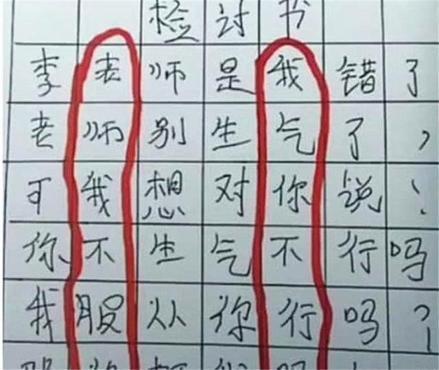 检讨书
李老师是我错了
老师别生气了，
可我想对你说！
你不生气不行吗
我服从你行吗？